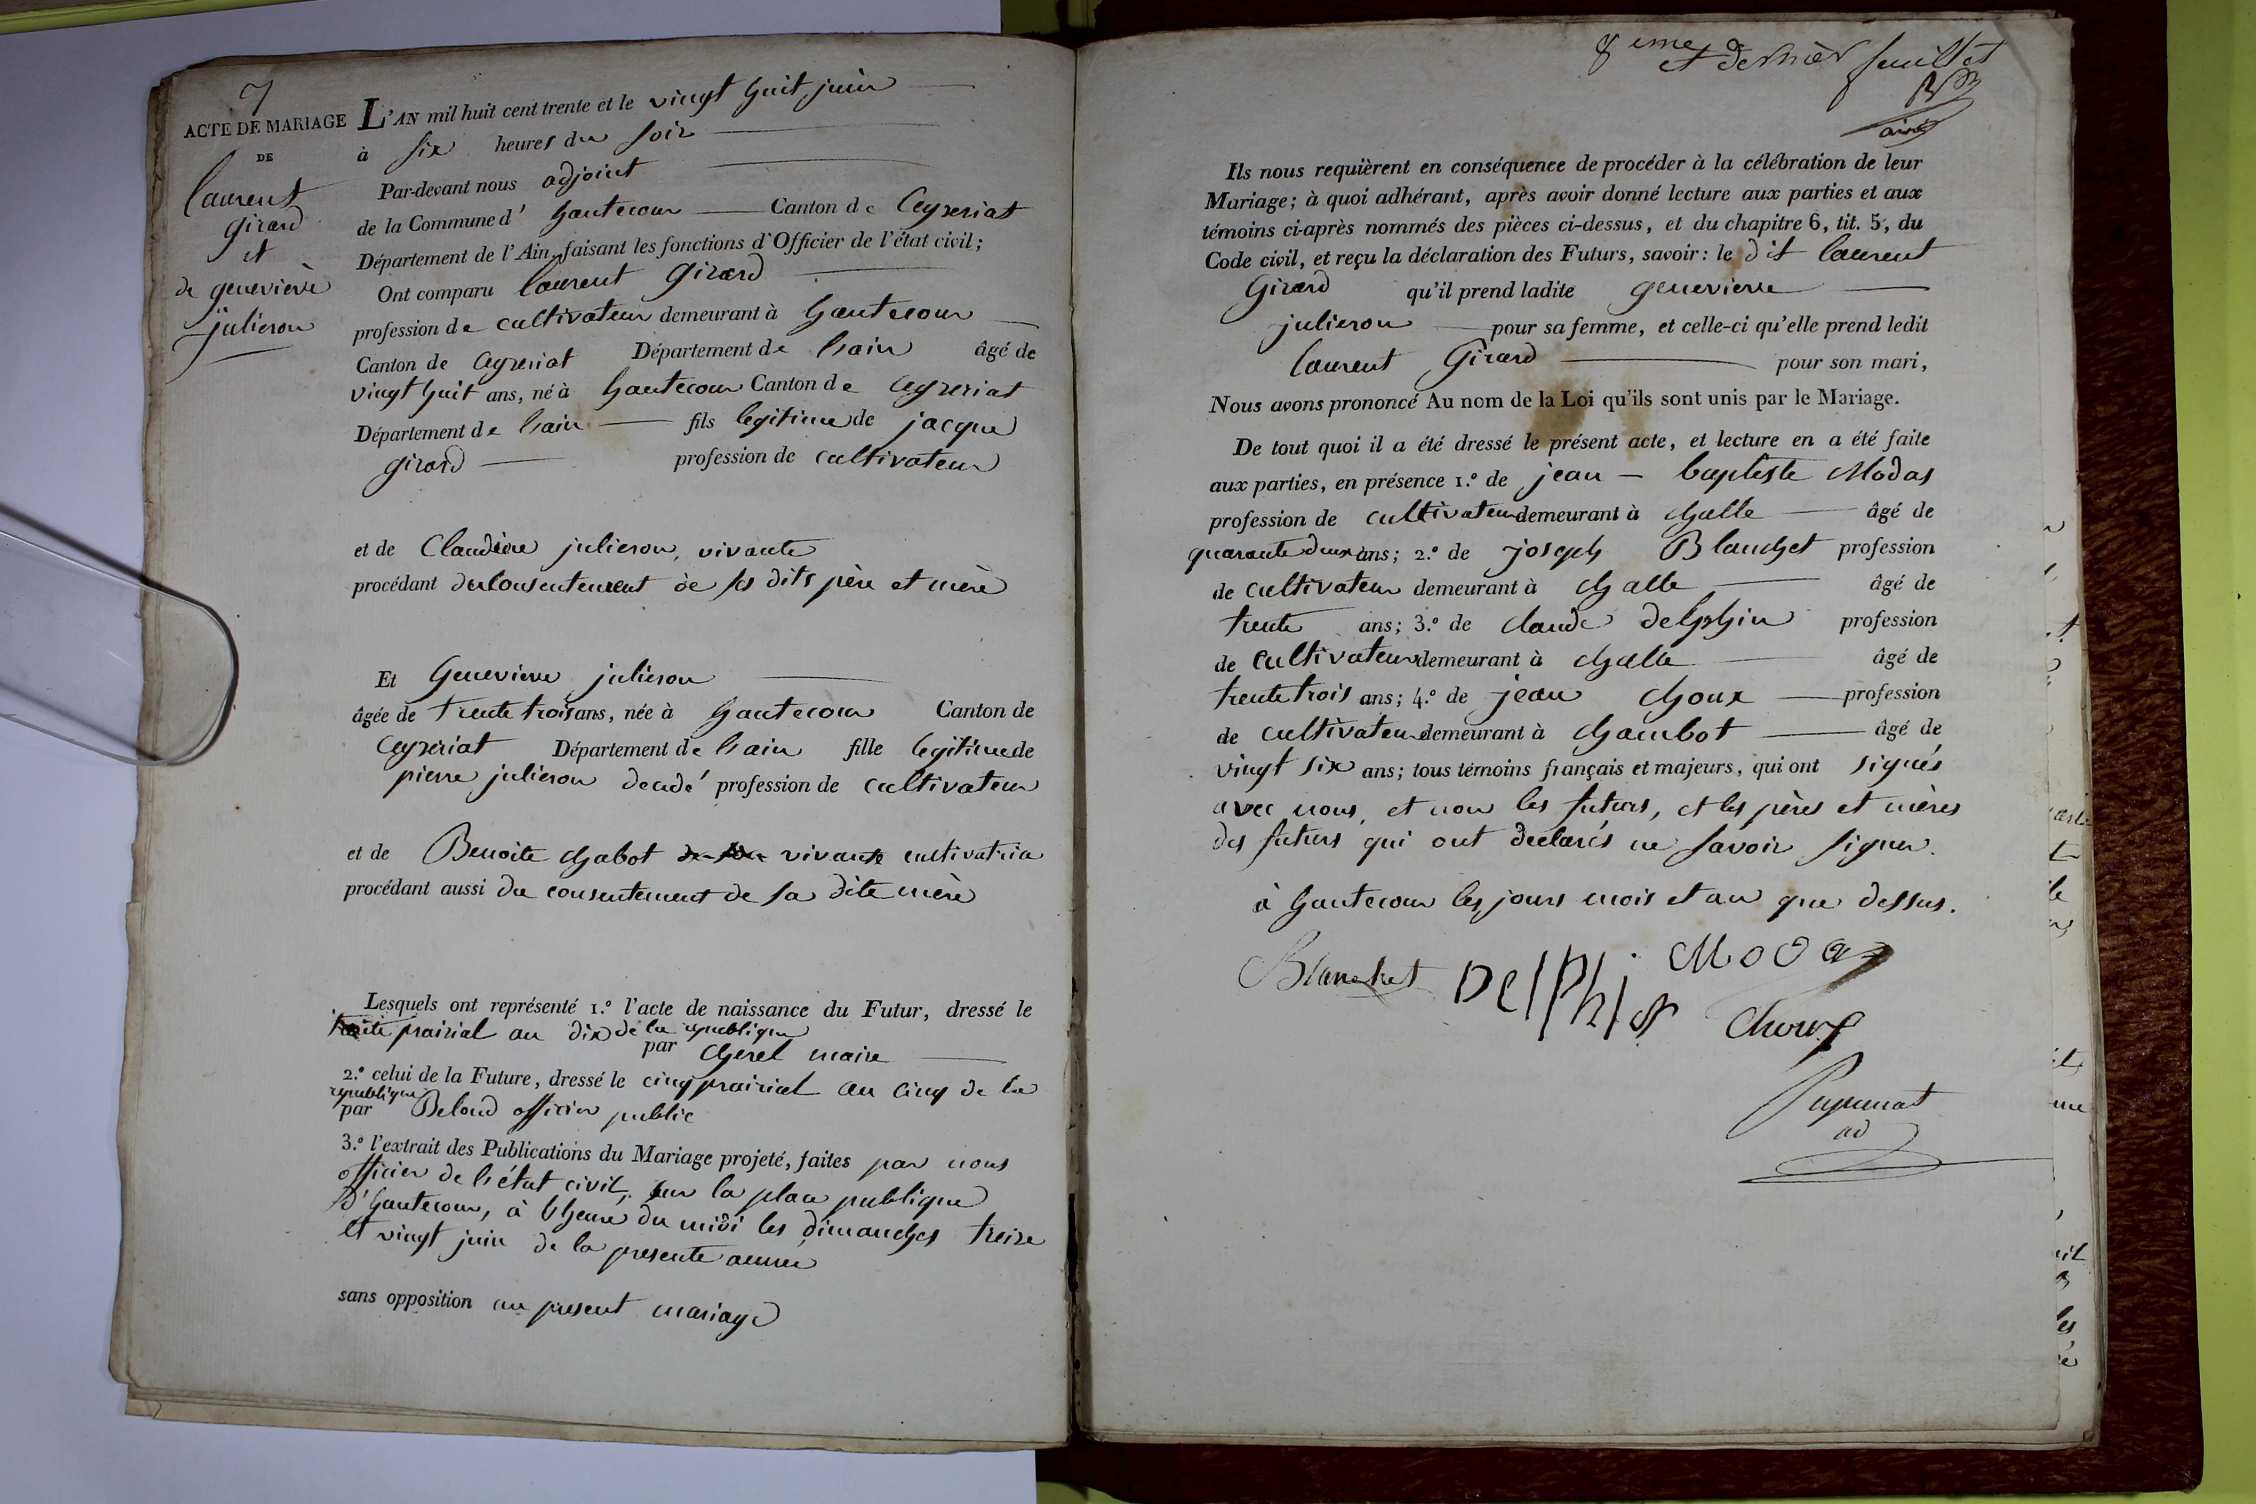 7
ACTE DE MARIAGE
DE
laurent
girard
et
de genevieve
julieron
L'AN mil huit cent trente et le vingt huit juin
à six heures du soir
Par-devant nous adjoint
de la Commune d' hautecour Canton de Ceyzeriat
Département de l'Ain, faisant les fonctions d'Officier de l'état civil;
Ont comparu laurent girard
profession de cultivateur demeurant à hautecour
Canton de Ceyzeriat Département de l'ain âgé de
vingt huit ans, né à hautecour Canton de Ceyzeriat
Département de l'ain fils legitime de jacque
girard profession de cultivateur
et de Claudine julieron, vivante
procédant du consentement de ses dits père et mère
Et Genevieve julieron
âgée de trente trois ans, née à hautecour Canton de
Ceyzeriat Département de l'ain fille legitime de
pierre julieron decédé profession de cultivateur
et de Benoite chabot vivante cultivatrice
procédant aussi du consentement de sa dite mère
Lesquels ont représenté 1.º l'acte de naissance du Futur, dressé le
prairial an dix de la republique
par cherel maire
2.º celui de la Future, dressé le cinq prairial an cinq de la
republique
par Beloud officier public
3.º l'extrait des Publications du Mariage projeté, faites par nous
officier de l'état civil, sur la place publique
d'hautecour, à l'heure du midi les dimanches treize
et vingt juin de la presente année
sans opposition au present mariage
8eme
et dernier feuillet
Ils nous requièrent en conséquence de procéder à la célébration de leur
Mariage; à quoi adhérant, après avoir donné lecture aux parties et aux
témoins ci-après nommés des pièces ci-dessus, et du chapitre 6, tit. 5, du
Code civil, et reçu la déclaration des Futurs, savoir: le dit laurent
Girard qu'il prend ladite genevieve
julieron pour sa femme, et celle-ci qu'elle prend ledit
laurent Girard pour son mari,
Nous avons prononcé Au nom de la Loi qu'ils sont unis par le Mariage.
De tout quoi il a été dressé le présent acte, et lecture en a été faite
aux parties, en présence 1.º de jean-baptiste Modas
profession de cultivateur demeurant à challe âgé de
quarante deux ans; 2.º de joseph Blanchet profession
de cultivateur demeurant à challe âgé de
trente ans; 3.º de claude delphin profession
de cultivateur demeurant à challe âgé de
trente trois ans; 4.º de jean choux profession
de cultivateur demeurant à chambot âgé de
vingt six ans; tous témoins français et majeurs, qui ont signés
avec nous, et non les futurs, et les pères et mères
des futurs qui ont declarés ne savoir signer.
à hautecour les jours mois et an que dessus.
Blanchet Delphin Modas
Choux
ad